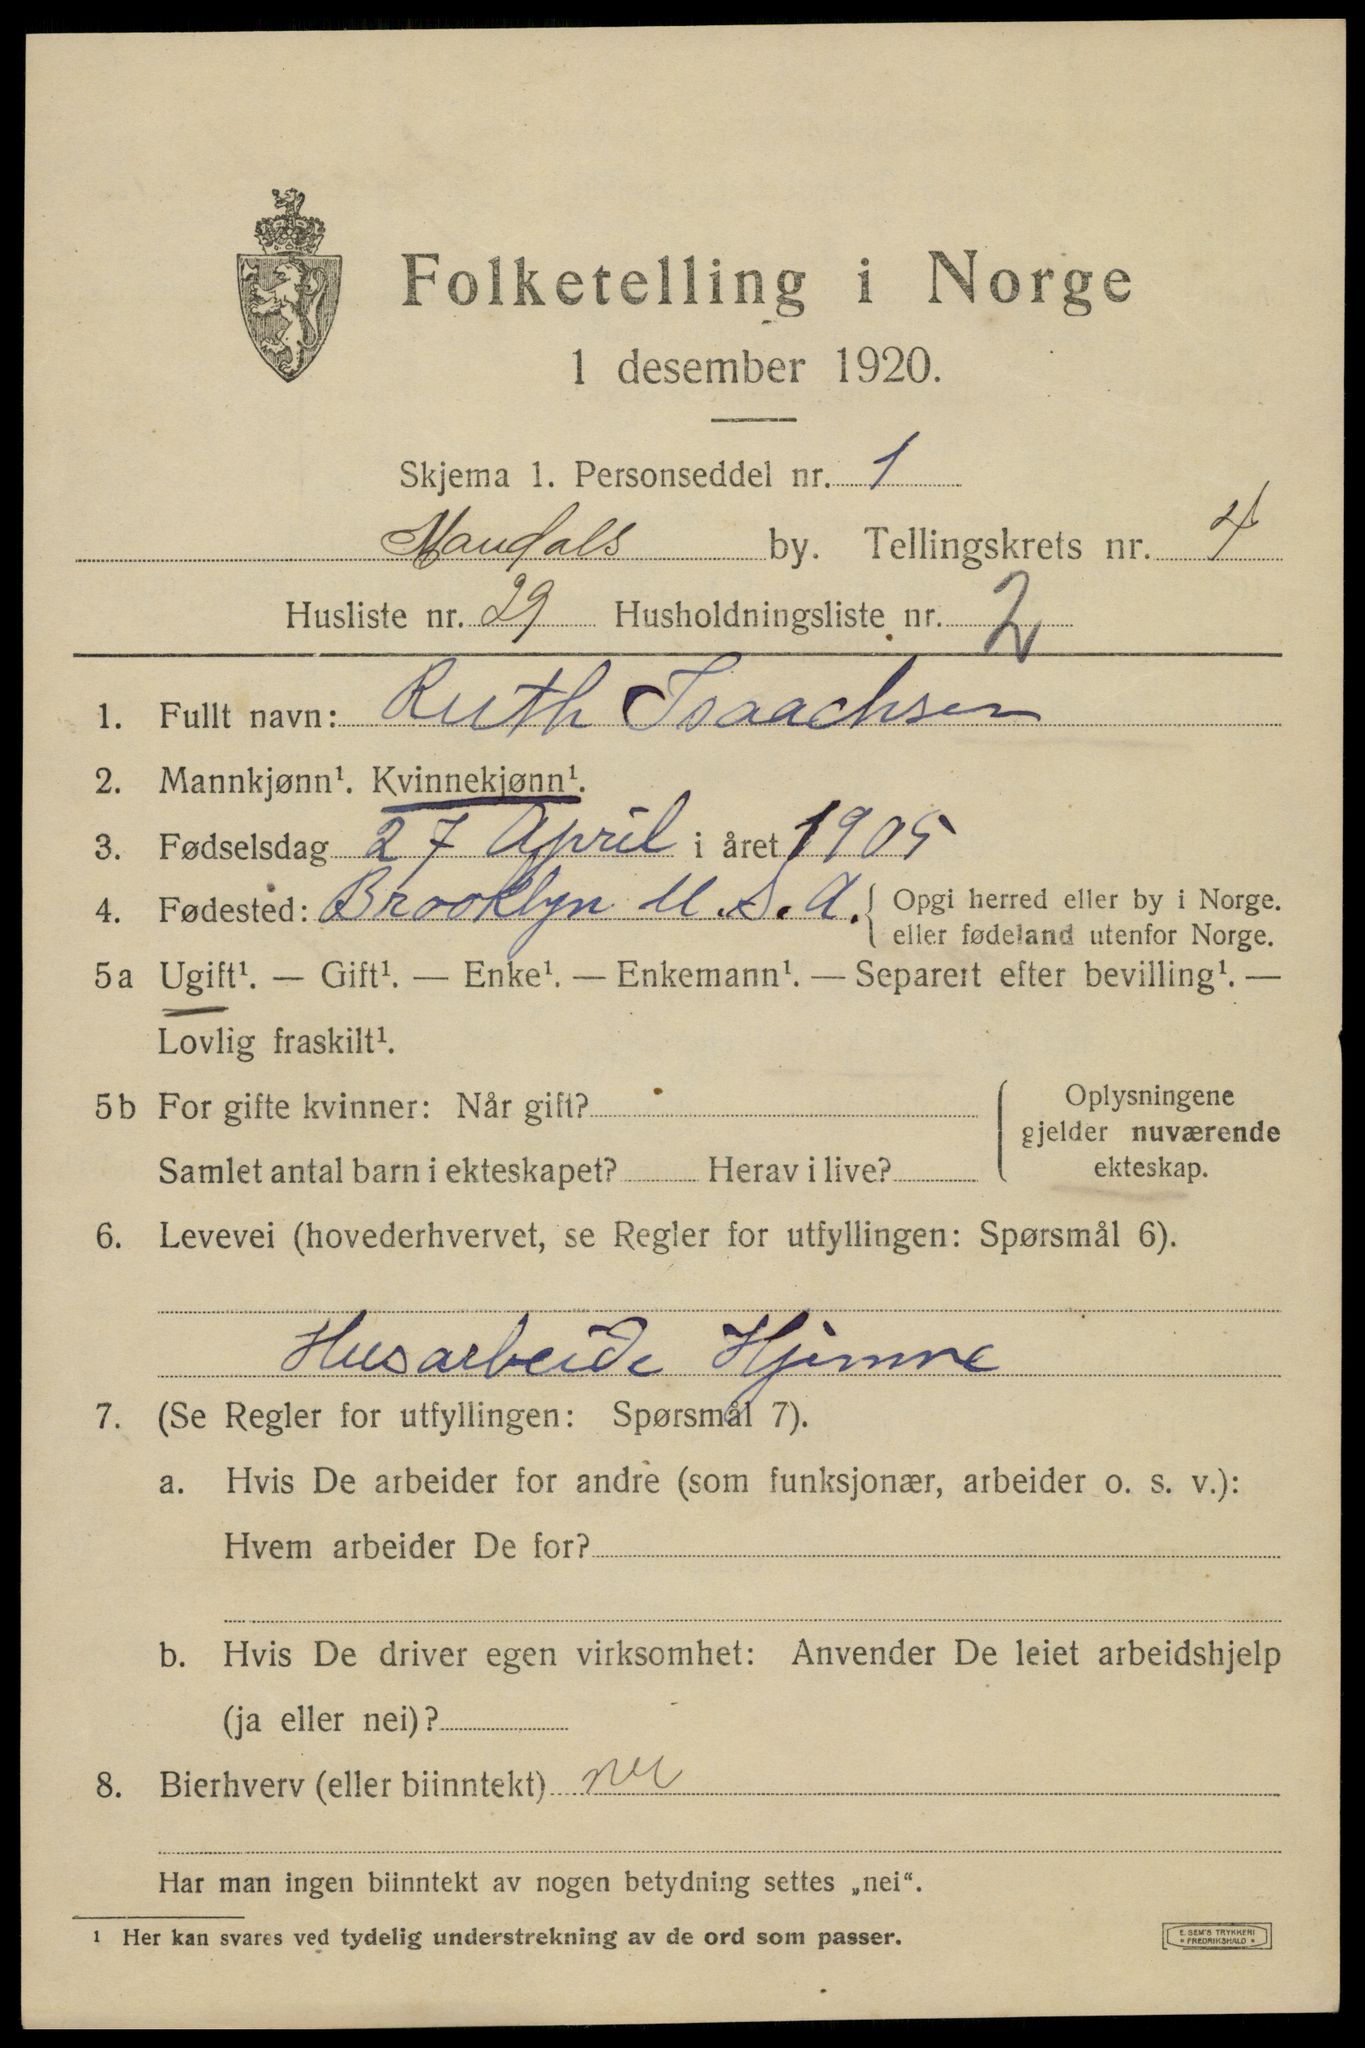 Folketelling i Norge
1 desember 1920.
Skjema 1. Personseddel nr. 1
Mandals by. Tellingskrets nr. 4
Husliste nr. 29 Husholdningsliste nr. 2
1. Fullt navn: Ruth Isaachsen
2. Mannkjønn¹. Kvinnekjønn¹.
3. Fødselsdag 27 April i året 1905
4. Fødested: Brooklyn U.S.A. { Opgi herred eller by i Norge.
eller fødeland utenfor Norge.
5a Ugift¹. — Gift¹. — Enke¹. — Enkemann¹. — Separert efter bevilling¹. —
Lovlig fraskilt¹.
5b For gifte kvinner: Når gift?
Samlet antal barn i ekteskapet? Herav i live?
Oplysningene
gjelder nuværende
ekteskap.
6. Levevei (hovederhvervet, se Regler for utfyllingen: Spørsmål 6).
Husarbeide Hjemme
7. (Se Regler for utfyllingen: Spørsmål 7).
a. Hvis De arbeider for andre (som funksjonær, arbeider o. s. v.):
Hvem arbeider De for?
b. Hvis De driver egen virksomhet: Anvender De leiet arbeidshjelp
(ja eller nei)?
8. Bierhverv (eller biinntekt) nei
Har man ingen biinntekt av nogen betydning settes „nei“.
¹ Her kan svares ved tydelig understrekning av de ord som passer.
E. SEM'S TRYKKERI
* FREDRIKSHALD *